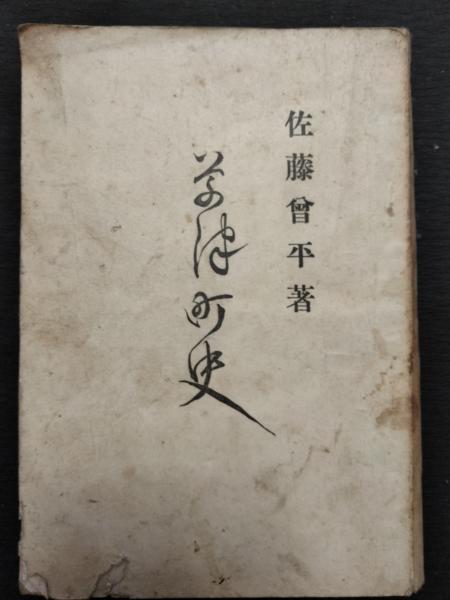 佐藤曾平著
草津町史